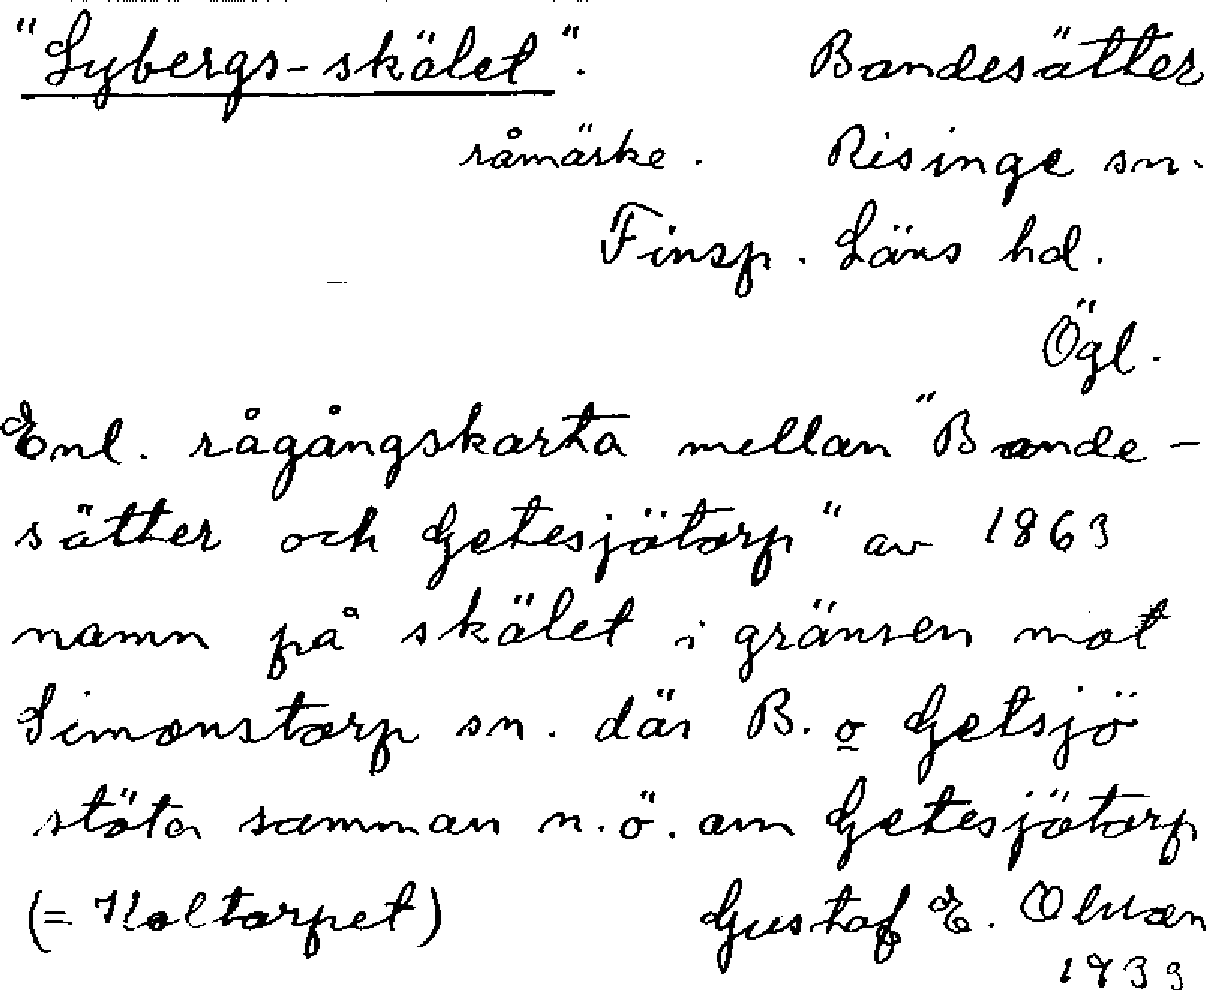 "Lybergs-skälet". Bandesätter
råmärke. Risinge sn.
Finsp. Läns hd.
Ögl.
Enl. rågångskarta mellan "Bande-
sätter och Getesjötorp" av 1863
namn på skälet i gränsen mot
Simonstorp sn. där B. o Getsjö
stöta samman n.ö. om Getesjötorp
(= Holtorpet) Gustaf E. Olsson
1933